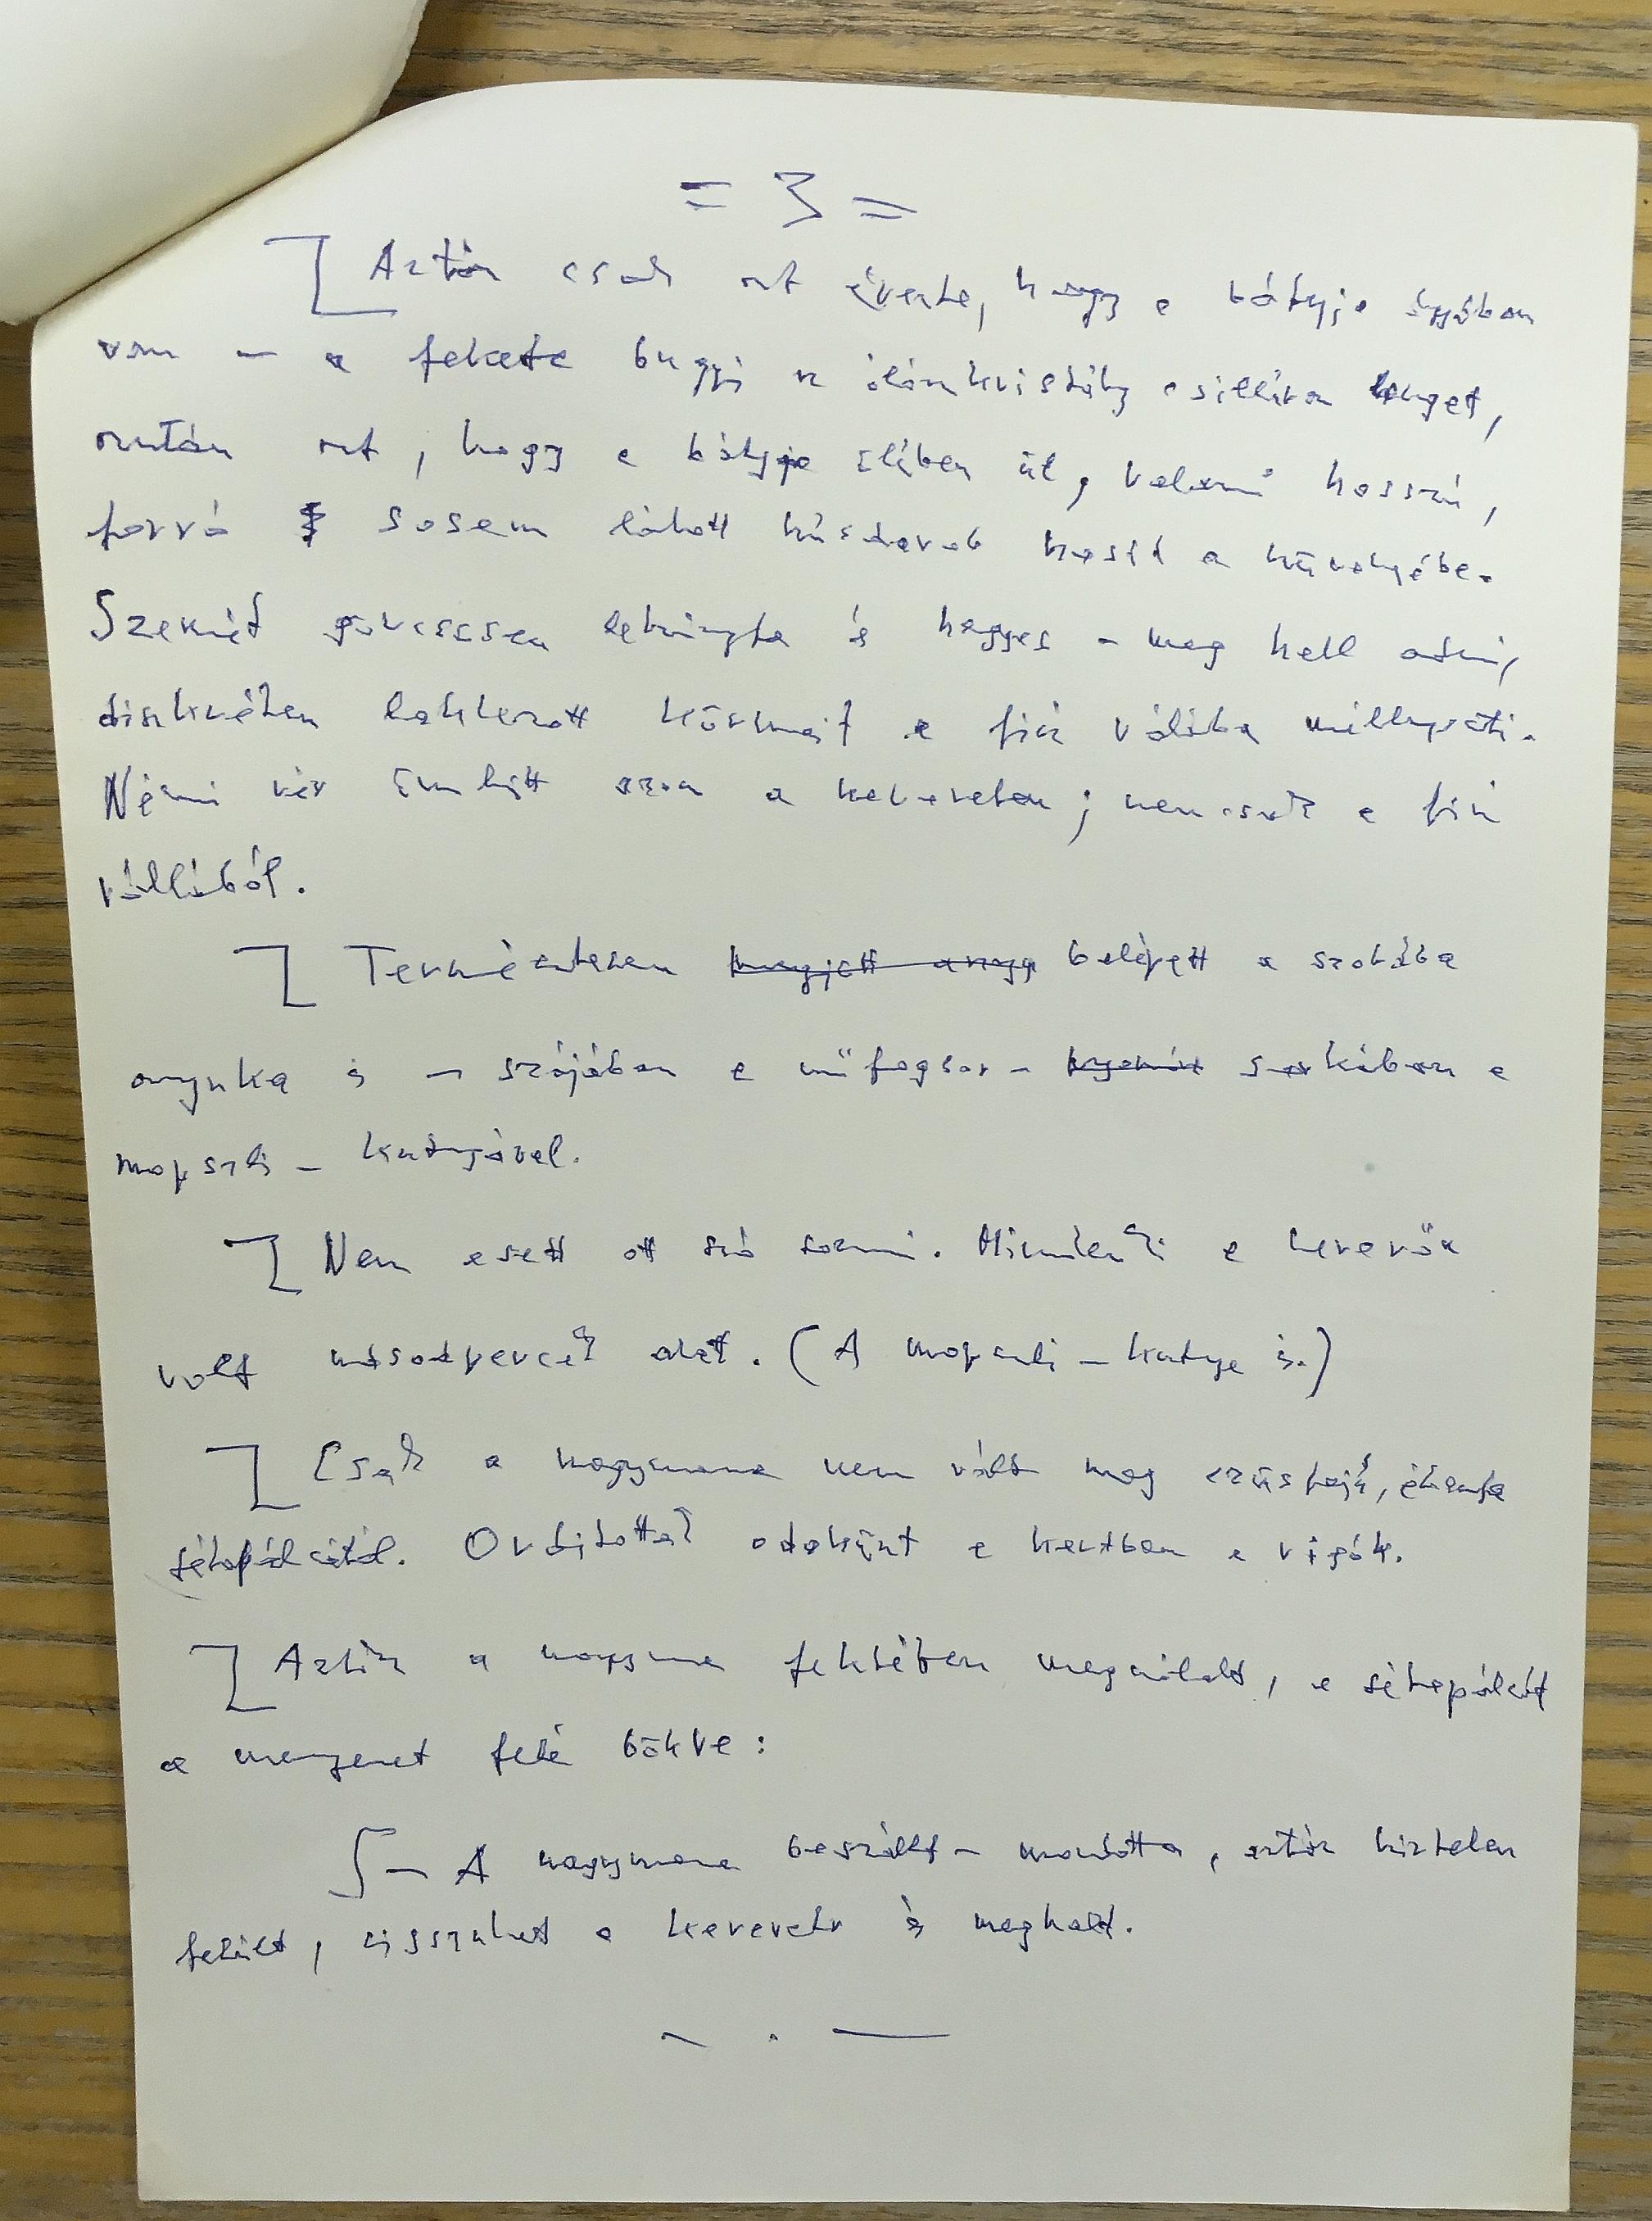 = 3 =
Aztán csak azt érezte, hogy a bátyja ágyában
van – a fekete bugyi az ólomkristály csilláron lenget,
azután azt, hogy a bátyja ölében ül, valami hosszú,
forró sosem látott húsdarab hasít a hüvelyébe.
Szemét görcsösen lehunyta és hegyes – meg kell adni,
diszkréten lakkozott körmeit a fiú vállába mélyeszti.
Némi vér ömlött azon a hevereten; nem csak a fiú
vállából.
Természetesen belépett a szobába
anyuka is – szájában a műfogsor – sarkában a
mopszli – kutyájával.
Nem esett ott szó semmi. Mindenki a heverőn
volt másodpercek alatt. (A mopszli – kutya is.)
Csak a nagymama nem vált meg ezüstfejű,
sétapálcától. Ordítottak odakint a kertben a rigók.
Aztán a nagymama fektében megszólalt, a sétapálcát
a mennyezet felé bökve:
– A nagymama beszállt – mondotta, aztán hirtelen
felült, visszahullt a heverőre és meghalt.
– . –